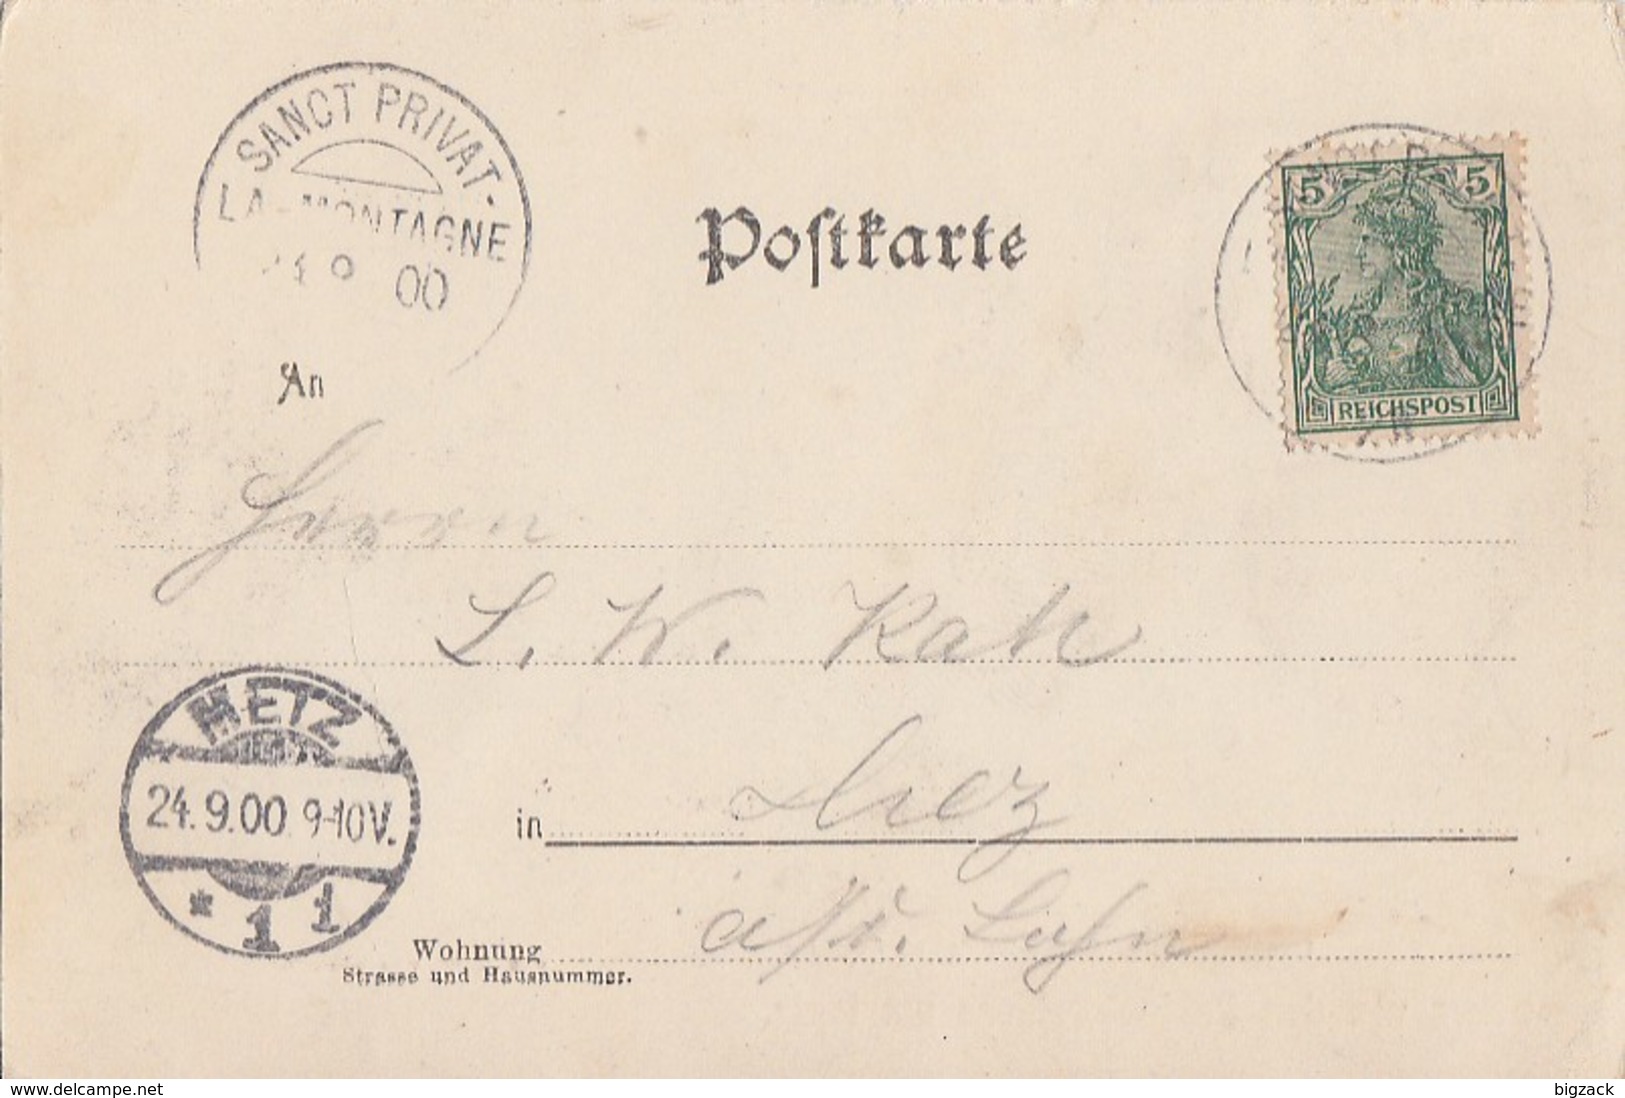 SANCT PRIVAT-
LA-MONTAGNE
00
Postkarte
5 5
REICHSPOST
An
Herrn
L. W. Kah
METZ
24.9.00 9-10V.
* 1 1
in
Diez
a/d. Lahn
Wohnung
Strasse und Hausnummer.
delcampe.net
bigzack